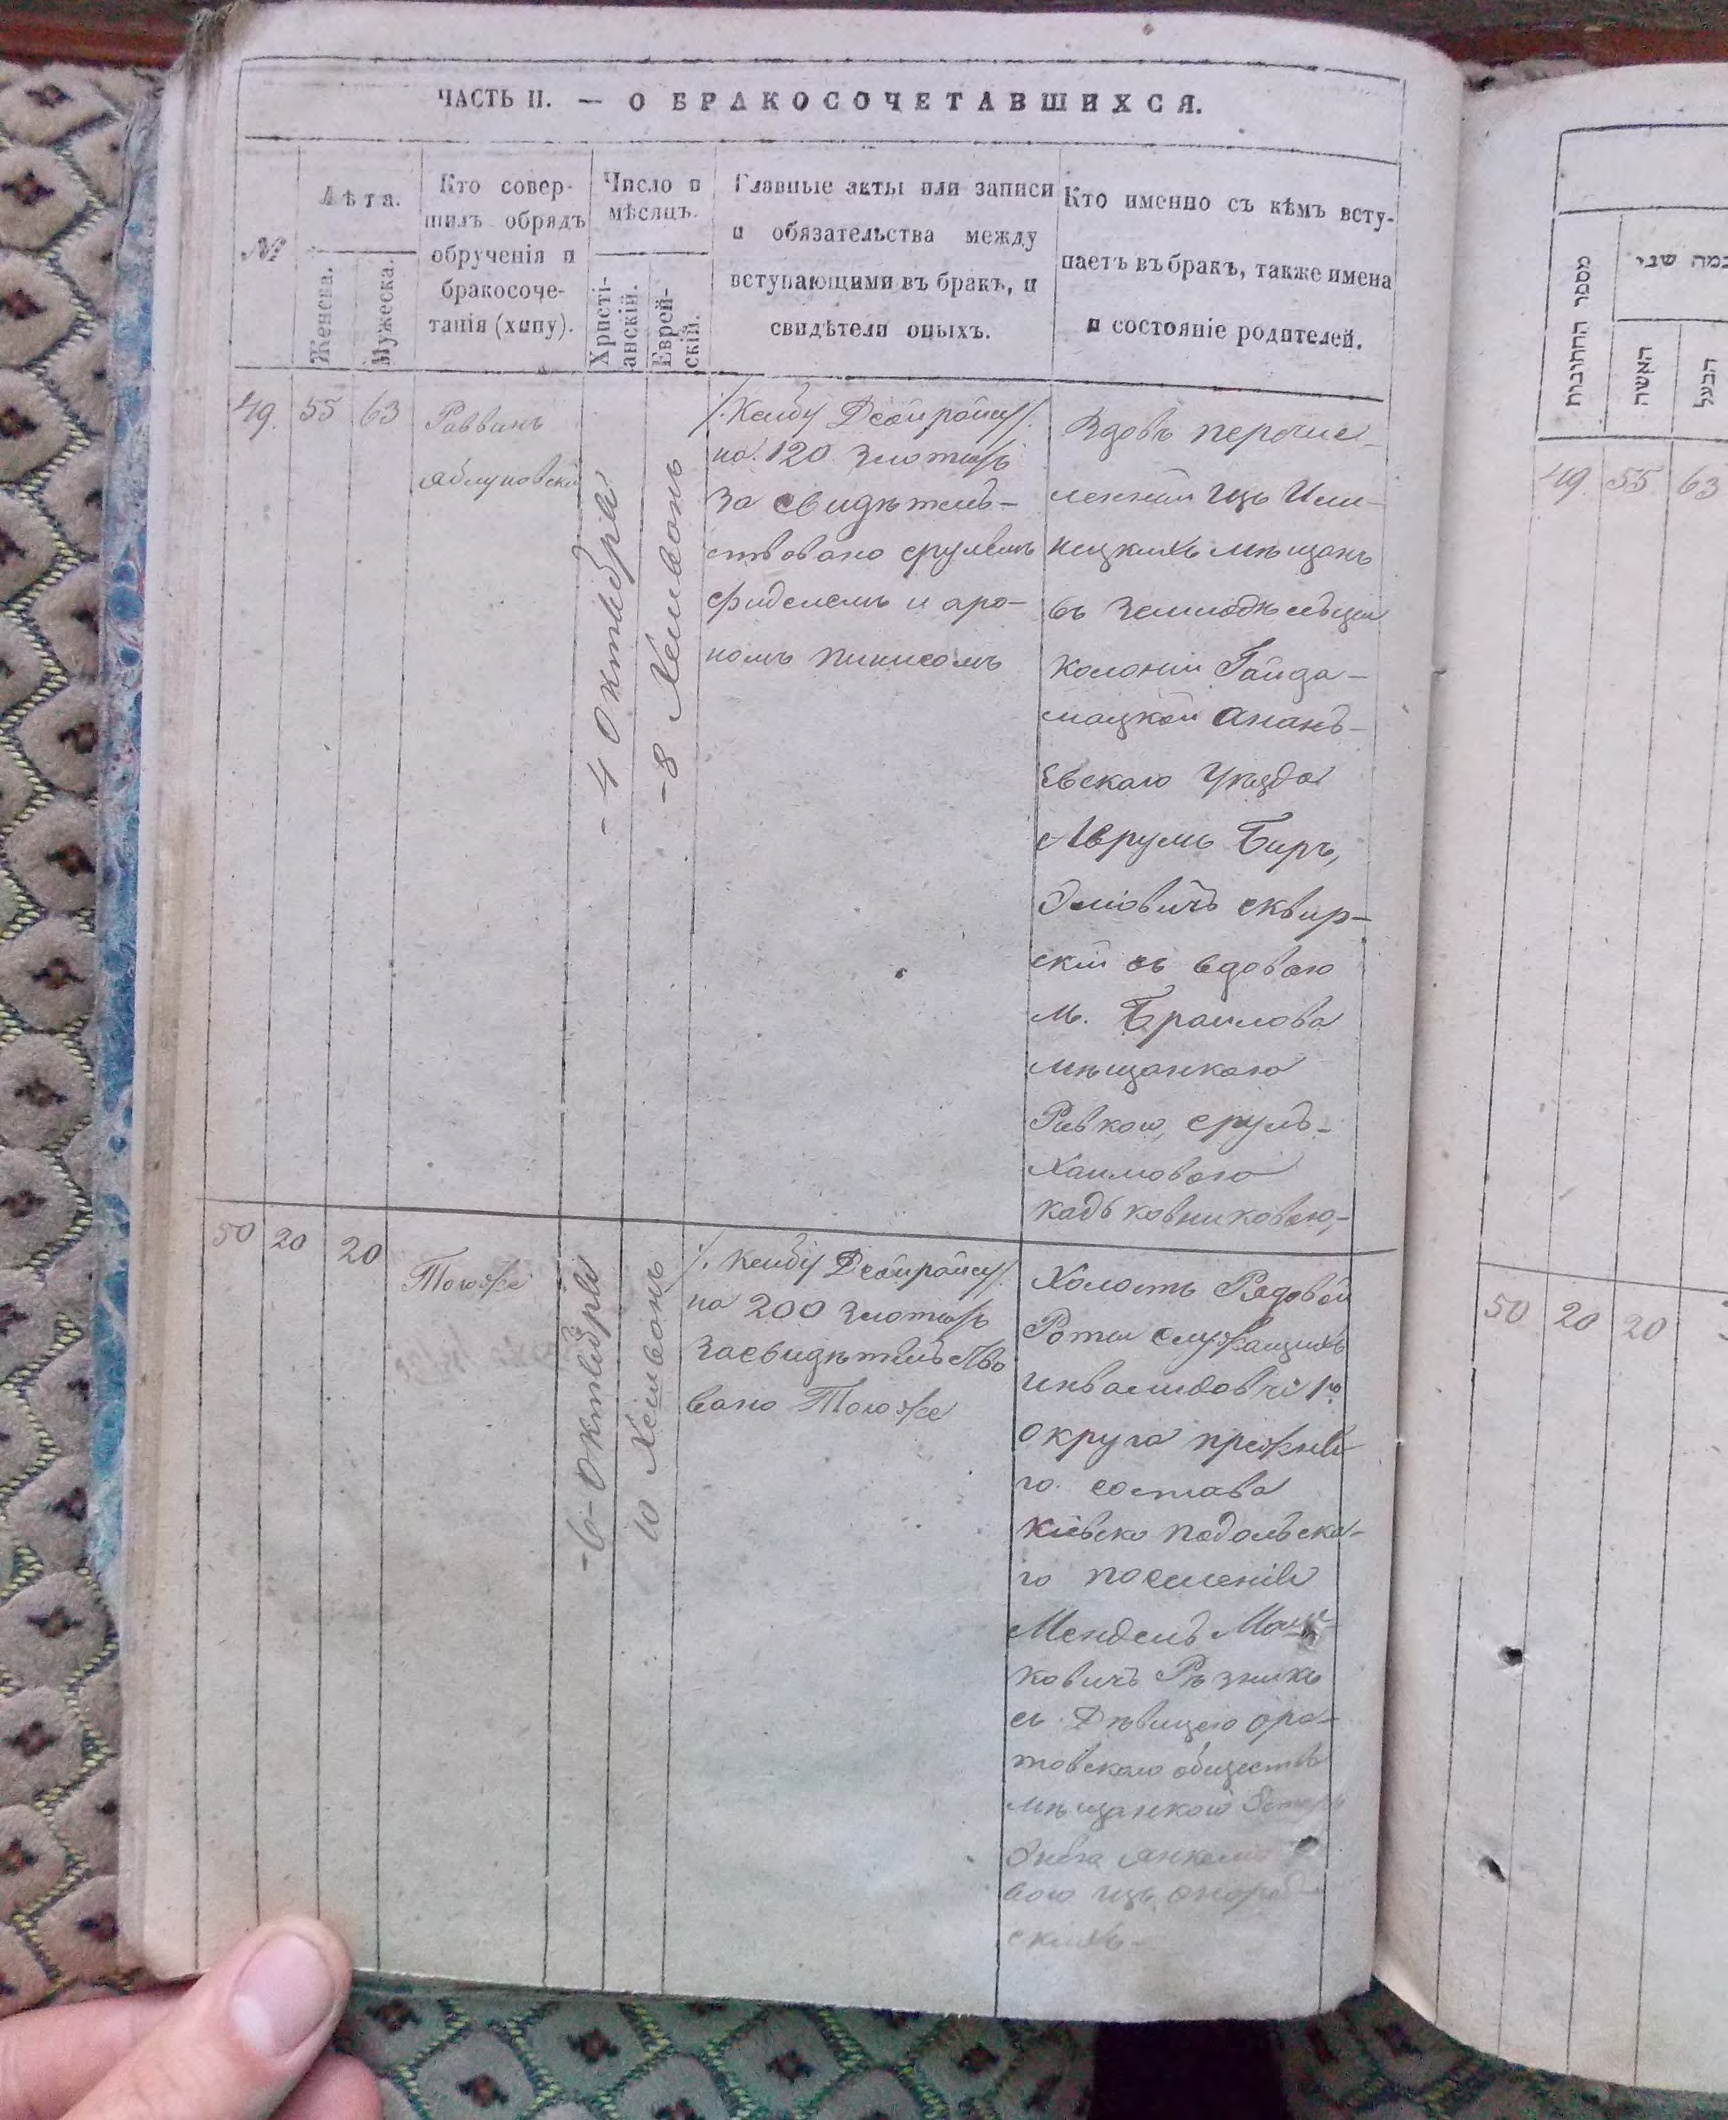 ЧАСТЬ II. — О БРАКОСОЧЕТАВШИХСЯ.
№
Лѣта.
Женска.
Мужеска.
Кто совер-
шилъ обрядъ
обрученія и
бракосоче-
танія (хипу).
Число и
мѣсяцъ.
Христі-
анскій.
Еврей-
скій.
Главные акты или записи
и обязательства между
вступающими въ бракъ, и
свидѣтели оныхъ.
Кто именно съ кѣмъ всту-
паетъ въ бракъ, также имена
и состояніе родителей.
49. 55 63
Раввинъ
Яблуновскій
- 4 Октября
- 8 Хешвонъ
/. Ксибу Деойрайсу /.
на 120 злотыхъ
За свидѣтель-
ствовано срулемъ
фиделемъ и аро-
номъ пинисомъ
Вдовъ перечис-
ленный изъ
мѣщанъ
въ Земледѣльцы
Колоніи Гайда-
мацкой Анань-
Евскаго Уѣзда
Аврумъ Беръ,
сквир-
скій съ вдовою
м. Браилова
мѣщанкою
Ривкою, Сруль-
Хаимовою
50 20 20
Тогоже
- 6 - Октября
10 Хешвонъ
/. Ксибу Деойрайсу /.
на 200 злотыхъ
Засвидѣтельство
вано Тогоже
Холостъ Рядовой
Роты служащихъ
инвалидовъ 1го
Округа прежня
го состава
Кіевско Подольска-
го поселенія
Мендель
ковичъ Рѣзникъ
съ Дѣвицею Ора-
товскаго общества
мѣщанкою
вою изъ
скихъ -
מספר החתונות
כמה שני
האשה
הבעל
49 55 63
50 20 20